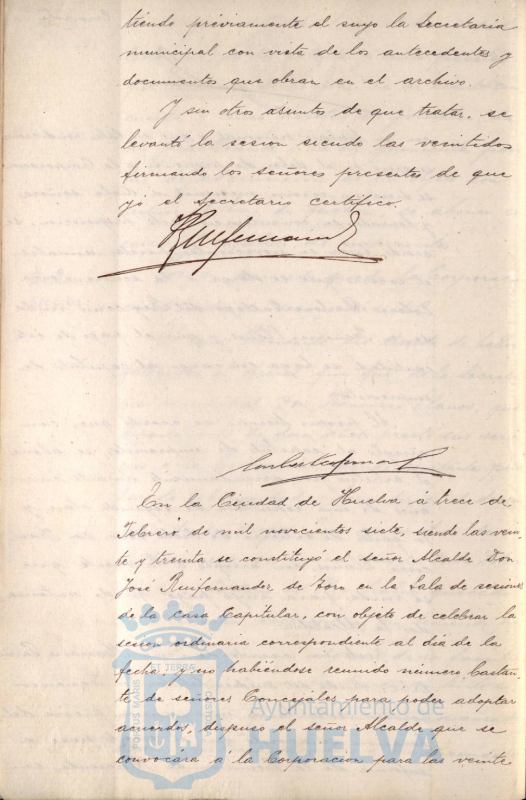 tiendo préviamente el suyo la Secretaria
municipal con vista de los antecedentes y
documentos que obran en el archivo.
Y sin otro asunto de que tratar, se
levantó la sesion siendo las veintidos
firmando los señores presentes de que
yó el Secretario certifico.
En la Ciudad de Huelva á trece de
Febrero de mil novecientos siete, siendo las vein-
te y treinta se constituyó el señor Alcalde Don
José Ruifernandez de Toro en la Sala de sesiones
de la Casa Capitular, con objeto de celebrar la
sesion ordinaria correspondiente al dia de la
fecha; y no habiéndose reunido número bastan-
te de señores Concejales para poder adoptar
acuerdos, dispuso el señor Alcalde que se
convocára á la Corporacion para las veinte
PORTUS MARIS ET TERRÆ CUSTODIA
Ayuntamiento de
HUELVA